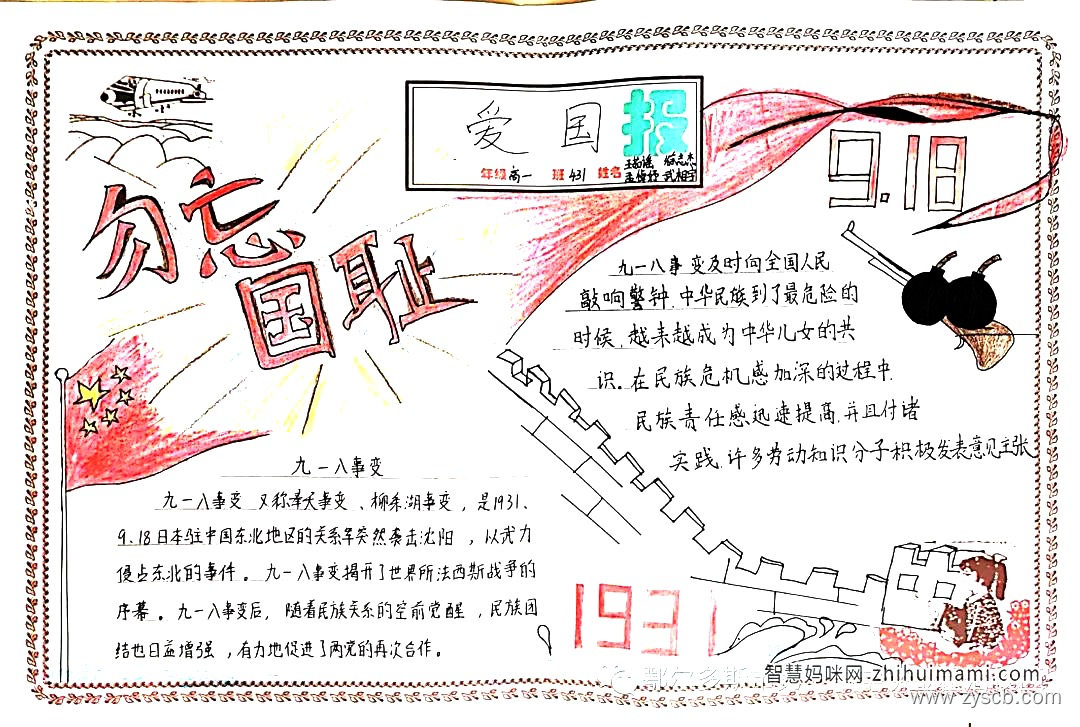 爱国报
年级 高一 班 431 姓名
9.18
勿忘
国耻
九一八事变及时向全国人民
敲响警钟.中华民族到了最危险的
时候.越来越成为中华儿女的共
识.在民族危机感加深的过程中.
民族责任感迅速提高.并且付诸
实践.许多劳动知识分子积极发表意见主张
九一八事变
九一八事变 又称奉天事变、柳条湖事变，是1931、
9.18日本驻中国东北地区的关东军突然袭击沈阳，以武力
侵占东北的事件。九一八事变揭开了世界
法西斯战争的
序幕。九一八事变后，随着民族关系的空前觉醒，民族团
结也日益增强，有力地促进了两党的再次合作。
1931
鄂尔多斯
智慧妈咪网 zhihuimami.com
www.zyscb.com